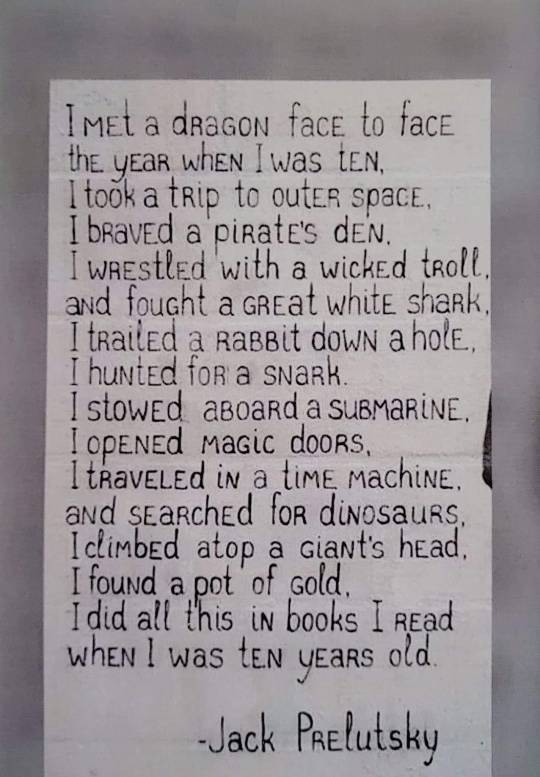 I met a dragon face to face
the year when I was ten,
I took a trip to outer space,
I braved a pirate's den,
I wrestled with a wicked troll,
and fought a great white shark,
I trailed a rabbit down a hole,
I hunted for a snark.
I stowed aboard a submarine,
I opened magic doors,
I traveled in a time machine,
and searched for dinosaurs,
I climbed atop a giant's head,
I found a pot of gold,
I did all this in books I read
when I was ten years old.
-Jack Prelutsky